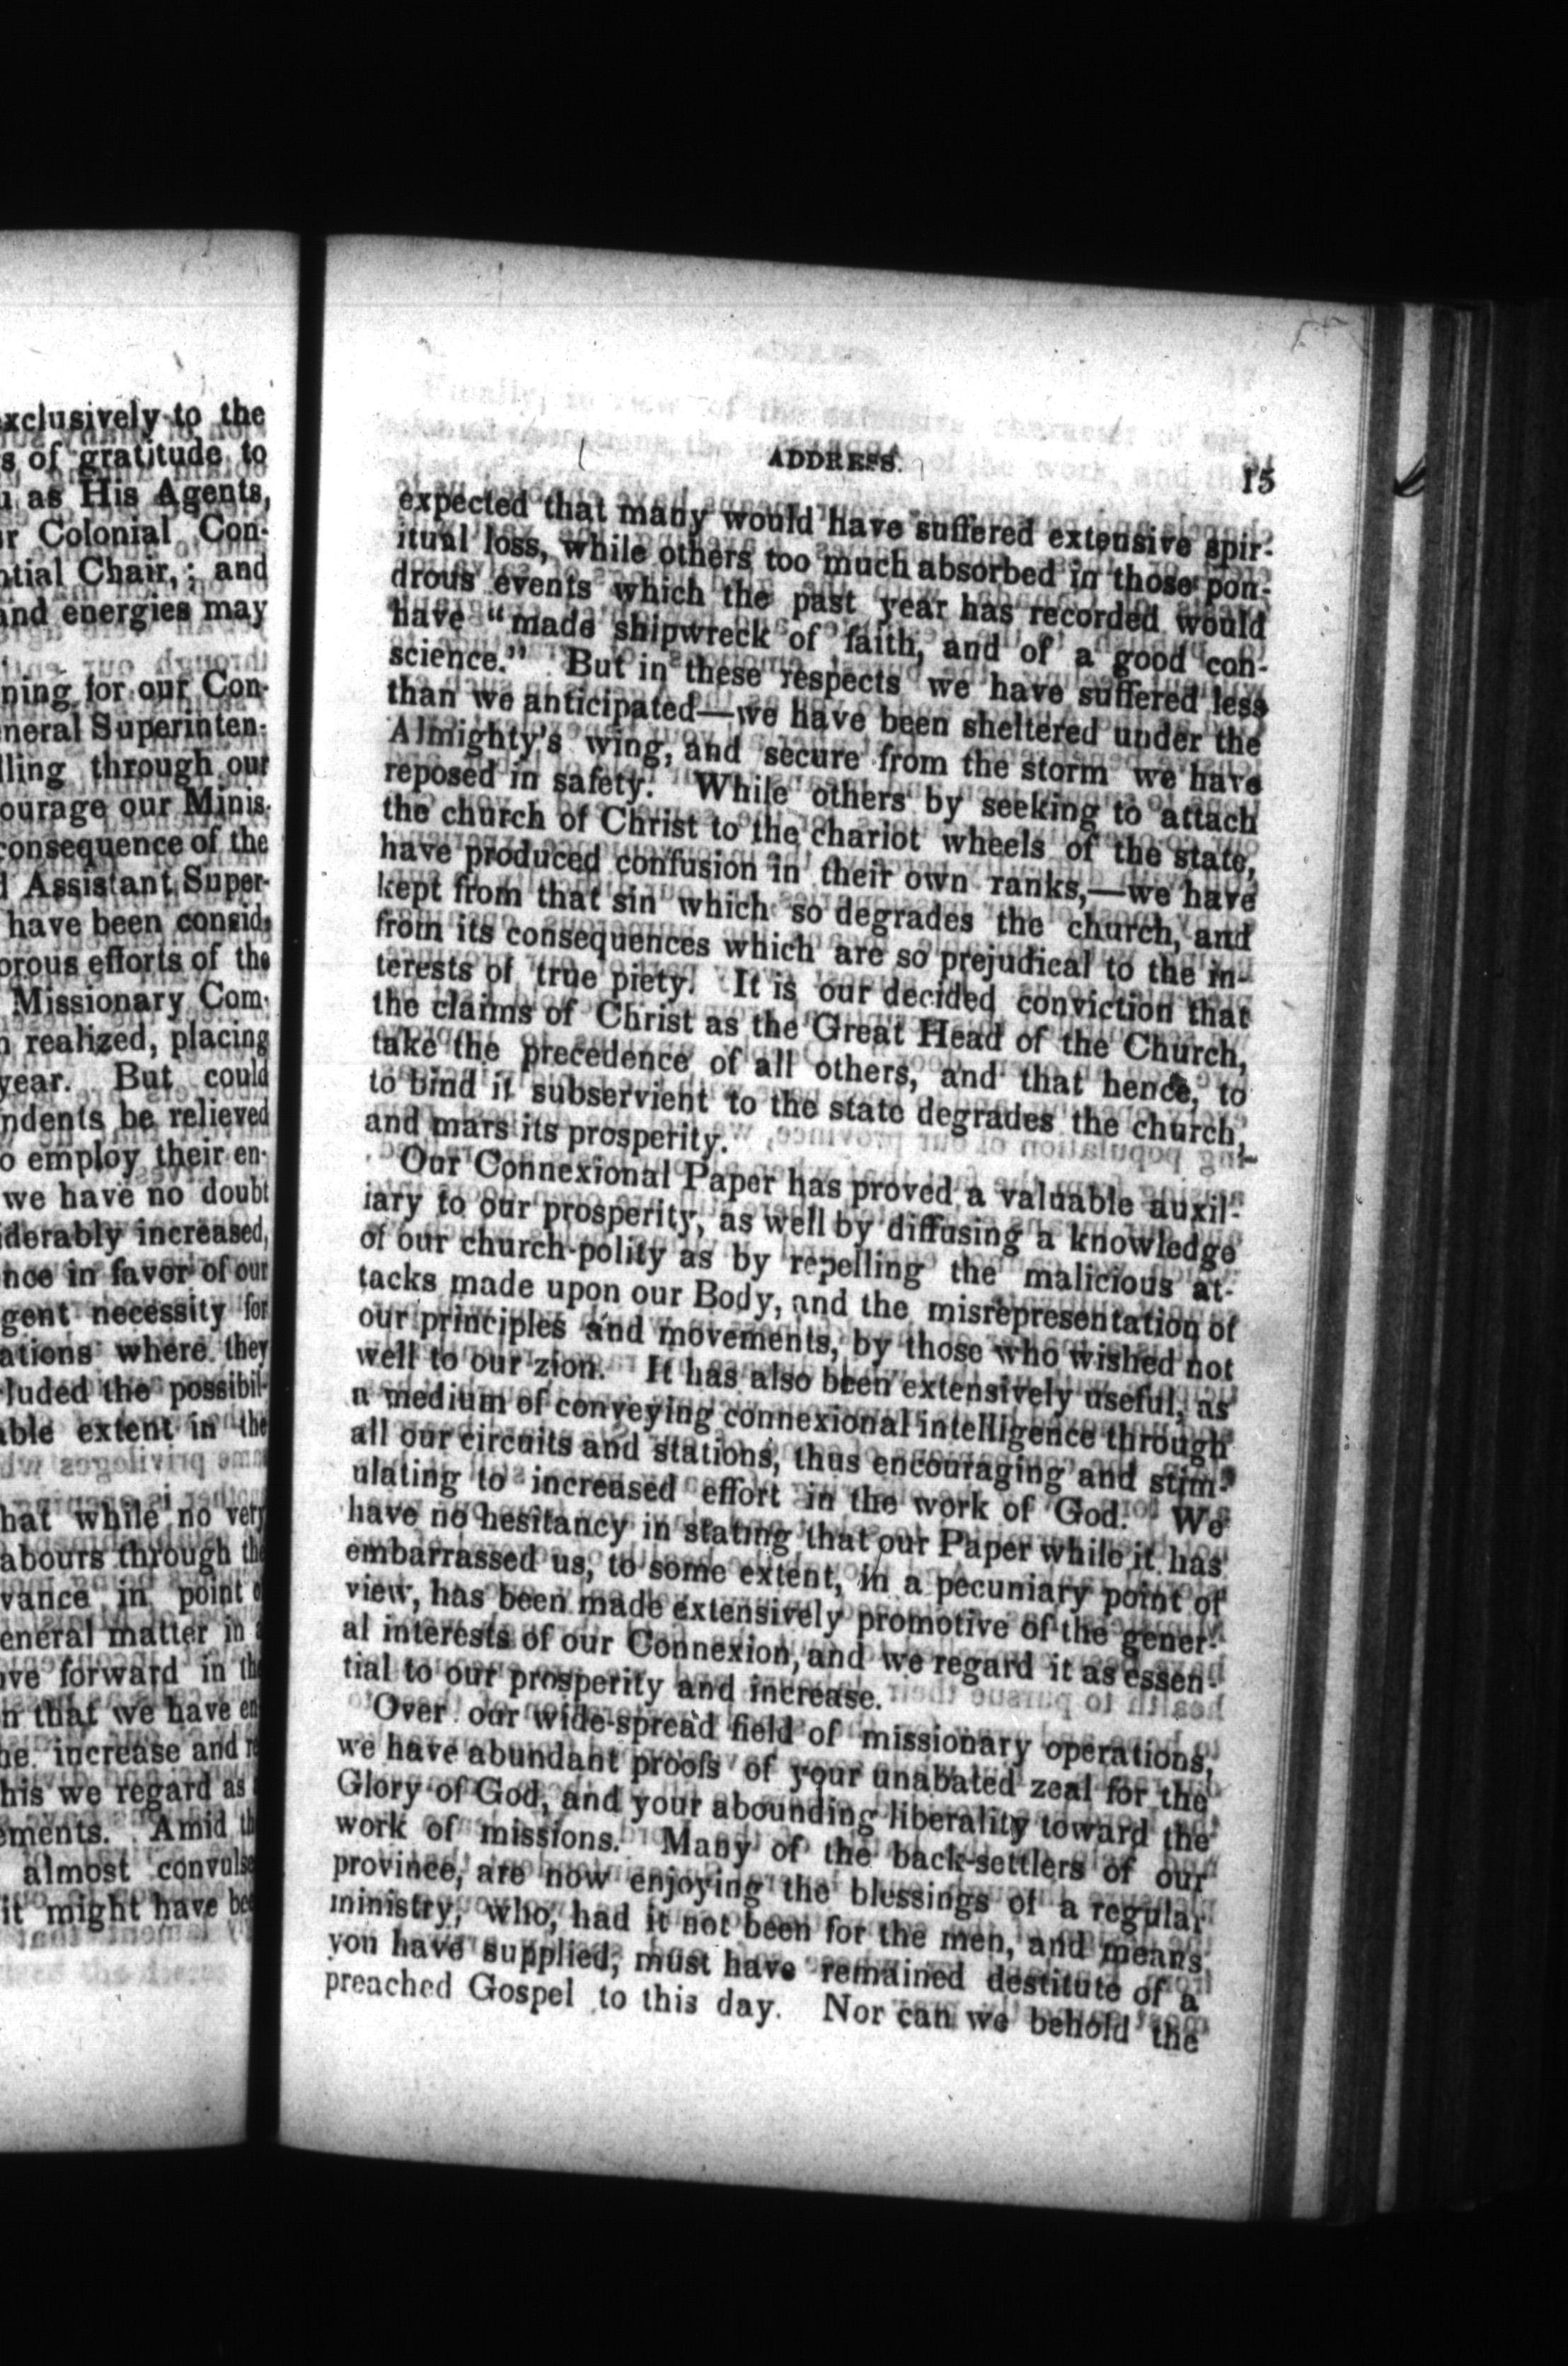 xclusively to the
s of gratitude to
u as His Agents,
r Colonial Con-
ntial Chair, ; and
and energies may
ning for our Con-
neral Superinten-
lling through our
ourage our Minis-
consequence of the
d Assistant Super-
have been consid-
orous efforts of the
Missionary Com-
n realized, placing
year. But could
ndents be relieved
o employ their en-
we have no doubt
iderably increased,
nce in favor of our
gent necessity for
ations where they
luded the possibil-
able extent in the
hat while no very
abours through the
vance in point o
eneral matter in a
ove forward in the
n that we have en
he increase and re
his we regard as a
ements. Amid th
almost convulse
it might have bee
ADDRESS. 15
expected that many would have suffered extensive spir-
itual loss, while others too much absorbed in those pon-
drous events which the past year has recorded would
have "made shipwreck of faith, and of a good con-
science." But in these respects we have suffered less
than we anticipated—we have been sheltered under the
Almighty's wing, and secure from the storm we have
reposed in safety. While others by seeking to attach
the church of Christ to the chariot wheels of the state,
have produced confusion in their own ranks,—we have
kept from that sin which so degrades the church, and
from its consequences which are so prejudical to the in-
terests of true piety. It is our decided conviction that
the claims of Christ as the Great Head of the Church,
take the precedence of all others, and that hence, to
to bind it subservient to the state degrades the church,
and mars its prosperity.
Our Connexional Paper has proved a valuable auxil-
iary to our prosperity, as well by diffusing a knowledge
of our church-polity as by repelling the malicious at-
tacks made upon our Body, and the misrepresentation of
our principles and movements, by those who wished not
well to our zion. It has also been extensively useful, as
a medium of conveying connexional intelligence through
all our circuits and stations, thus encouraging and stim-
ulating to increased effort in the work of God. We
have no hesitancy in stating that our Paper while it has
embarrassed us, to some extent, in a pecuniary point of
view, has been made extensively promotive of the gener-
al interests of our Connexion, and we regard it as essen-
tial to our prosperity and increase.
Over our wide-spread field of missionary operations,
we have abundant proofs of your unabated zeal for the
Glory of God, and your abounding liberality toward the
work of missions. Many of the back-settlers of our
province, are now enjoying the blessings of a regular
ministry, who, had it not been for the men, and means
you have supplied, must have remained destitute of a
preached Gospel to this day. Nor can we behold the